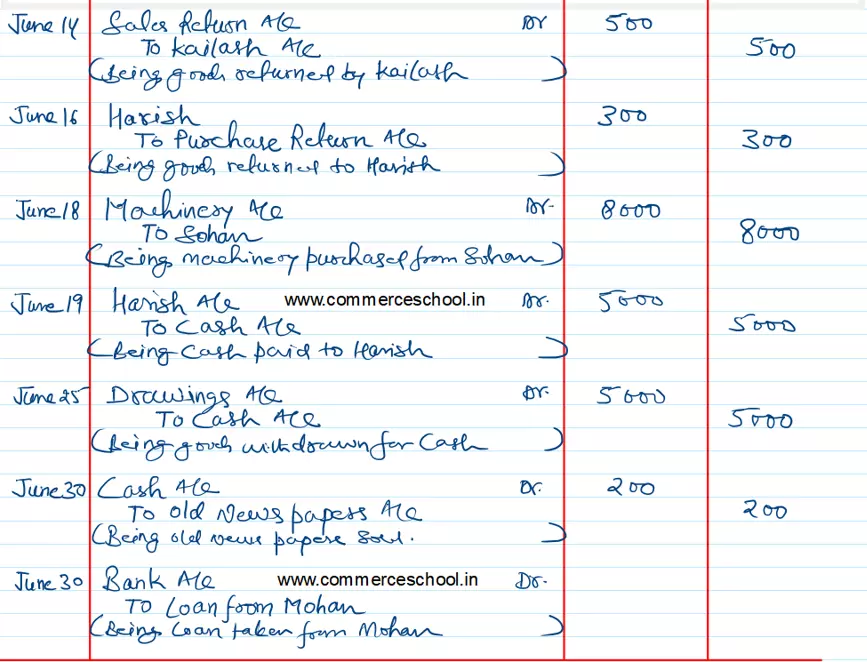 June 14 Sales Return A/c Dr 500
To Kailash A/c 500
(Being goods returned by Kailash)
June 16 Harish 300
To Purchase Return A/c 300
(Being goods returned to Harish)
June 18 Machinery A/c Dr. 8000
To Sohan 8000
(Being machinery purchased from Sohan)
June 19 Harish A/c www.commerceschool.in Dr. 5000
To Cash A/c 5000
(Being Cash paid to Harish)
June 25 Drawings A/c Dr. 5000
To Cash A/c 5000
(Being goods withdrawn for Cash)
June 30 Cash A/c Dr. 200
To Old News papers A/c 200
(Being old news papers Sold.)
June 30 Bank A/c www.commerceschool.in Dr.
To Loan from Mohan
(Being Loan taken from Mohan)